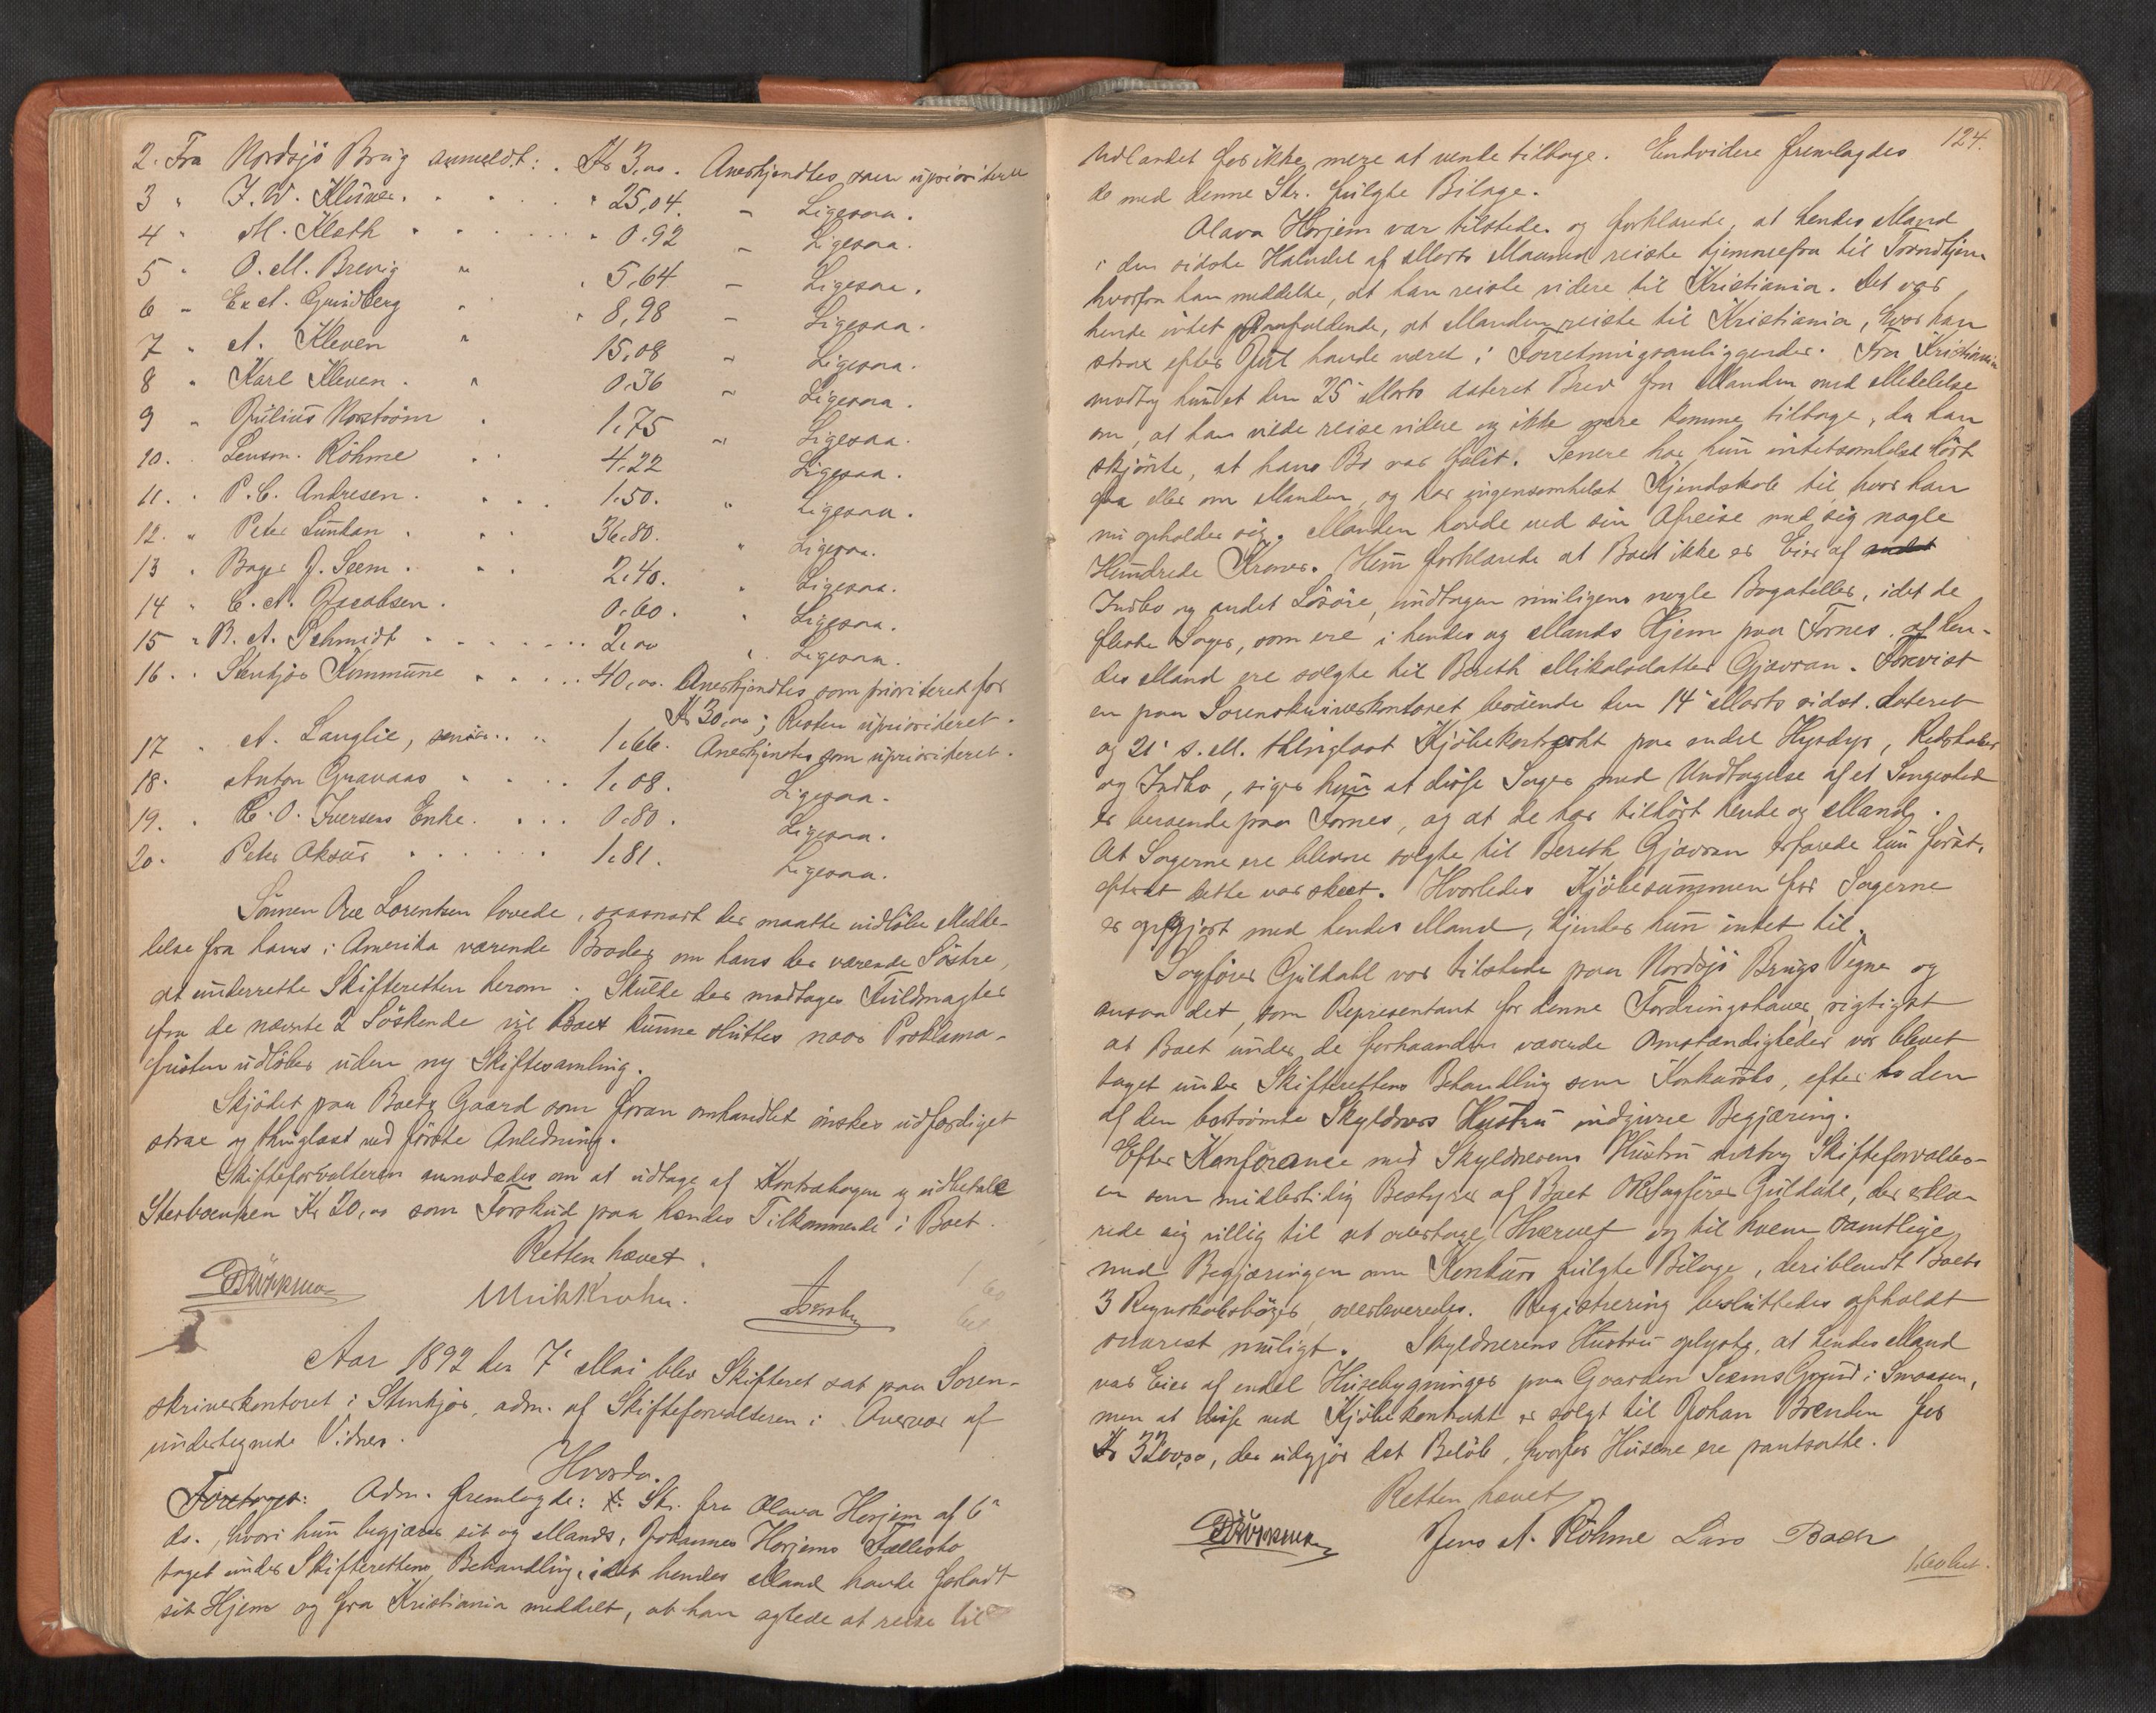 2. Fra Nordsjö Brug anmeldt: . Kr 3,00. Anerkjendtes som uprioriteret
3 " J. W. Klüver. . . . . " 25,04. – Ligesaa.
4 " M. Kloth . . . . " 0.92 – Ligesaa.
5 " O. M. Brevig " " 5,64 – Ligesaa.
6 " E. A. Grindberg " " 8,98 – Ligesaa.
7 " A. Kleven " 15,08 " Ligesaa.
8 " Karl Kleven . " 0.36 " Ligesaa.
9 " Julius Norström . 1,75 " Ligesaa.
10. " Röhme . . 4,22 Ligesaa.
11. " P. C. Andresen. . . . 1.50. " Ligesaa.
12. " Peter Sundan . . . 36.80. " Ligesaa.
13 " Bager J. Seem . . . 2.40. " Ligesaa.
14 " C. A. Jacobsen. 0.60. " Ligesaa.
15 " B. A. Schmidt . . . . . 2,00 " Ligesaa.
16. " Stenkjær Kommune . . . . 40,00. Anerkjendtes som prioriteret for
Kr 30,00; Resten uprioriteret.
17 " A. Langlie, senior. . . 1.66. Anerkjendtes som uprioriteret.
18. Anton Gravaas . . . . 1.08. Ligesaa.
19. " O. Iversens Enke. . . . 0.80. Ligesaa.
20. Peter Oksur . . . . . . 1.81. Ligesaa.
Sönnen Ole Lorentsen lovede, saasnart der maatte indlöbe Medde-
lelse fra hans i Amerika værende Broder om hans der værende Söstre,
at underrette Skifteretten herom. Skulde der modtages Fuldmagter
fra de nævnte 2 Söskende vil Boet kunne sluttes naar Proklama-
fristen udlöber uden ny Skiftesamling.
Skjödet paa Boets Gaard som foran omhandlet önskes udfærdiget
strax og thinglæst ved förste Anledning.
Skifteforvalteren anmodedes om at udtage af Kontrabogen og udbetale
Sterboenken Kr 20,00 som Forskud paa hendes Tilkommende i Boet.
Retten hævet.
Aar 1892 den 7de Mai blev Skifteret sat paa Soren-
skriverkontoret i Stenkjær, adm. af Skifteforvalteren i Overvær af
undertegnede Vidner.
Hvorda.
Foretoges: Adm. fremlagde: Skr. fra Olava Horjem af 6te
ds., hvori hun begjærer sit og Mands, Johannes Horjems Fællesbo
taget under Skifterettens Behandling, idet hendes Mand havde forladt
sit Hjem og fra Kristiania meddelt, at han agtede at reise til
124.
Udlandet for ikke mere at vende tilbage. Endvidere fremlagdes
de med denne Skr. fulgte Bilage.
Olava Horjem var tilstede og forklarede, at hendes Mand
i den sidste Halvdel af Marts Maaned reiste hjemmefra til Trondhjem
hvorfra han meddelte, at han reiste videre til Kristiania. Det var
hende intet paafaldende, at Manden reiste til Kristiania, hvor han
strax efter Jul havde været i Forretningsanliggender. Fra Kristiania
modtog hun et den 25de Marts dateret Brev fra Manden med Meddelelse
om, at han vilde reise videre og ikke mere komme tilbage, da han
skjönte, at hans Bo var fallit. Senere har hun intetsomhelst hört
fra eller om Manden, og har ingensomhelst Kjendskab til, hvor han
nu opholder sig. Manden havde ved sin Afreise med sig nogle
Hundrede Kroner. Hun forklarede at Boet ikke er Eier af andet
Indbo og andet Lösöre, undtagen muligens nogle Bagateller, idet de
fleste Sager, som ere i hendes og Mands Hjem paa Fornes, af hen-
des Mand ere solgte til Bereth Mikalsdatter Gjævran. Forevist
en paa Sorenskriverkontoret beroende den 14de Marts sidst. dateret
og 21de s. M. thinglæst Kjöbekontrakt paa endel Husdyr, Redskaber
og Indbo, siger hun at disse Sager med Undtagelse af et Sengested
er beroende paa Fornes, og at de har tilhört hende og Mand.
At Sagerne ere blevne solgte til Bereth Gjævran erfarede hun först,
efterat dette var skeet. Hvorledes Kjöbesummen for Sagerne
er opgjort med hendes Mand, kjender hun intet til.
Sagförer Guldahl var tilstede paa Nordsjö Brugs Vegne og
ansaa det, som Representant for denne Fordringshaver, rigtigst
at Boet under de forhaanden værende Omstændigheder var blevet
taget under Skifterettens Behandling som Konkursbo, efter den
af den bortrömte Skyldners Hustru indgivne Begjæring.
Efter Konferance med Skyldnerens Hustru antog Skifteforvalter-
en som midlertidig Bestyrer af Boet ORSagförer Guldahl, der erklæ-
rede sig villig til at overtage Hvervet og til hvem samtlige
med Begjæringen om Konkurs fulgte Bilage, deriblandt Boets
3 Regnskabsböger, overleveredes. Registrering besluttedes afholdt
snarest muligt. Skyldnerens Hustru oplyste, at hendes Mand
var Eier af endel Husebygninger paa Gaarden Seems Grund i Snaasen,
men at disse ved Kjöbekontrakt er solgt til Johan Brenden for
Kr 3200,00, der udgjör det Belöb, hvorfor Husene ere pantsatte.
Retten hævet
Jens A. Röhme Lars Bach